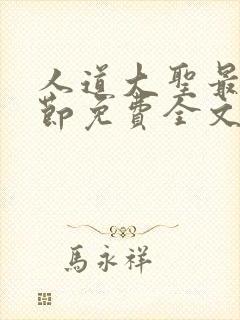 人道大聖最
節免費全文
馬永祥